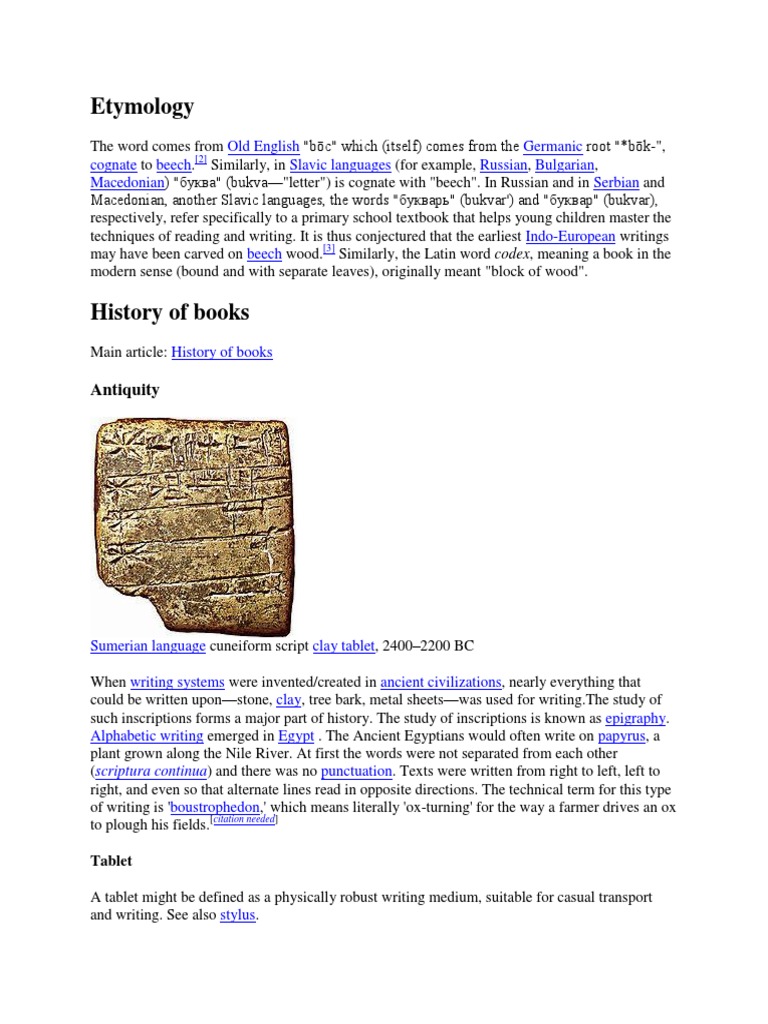 Etymology
The word comes from Old English "bōc" which (itself) comes from the Germanic root "*bōk-",
cognate to beech.[2] Similarly, in Slavic languages (for example, Russian, Bulgarian,
Macedonian) "буква" (bukva—"letter") is cognate with "beech". In Russian and in Serbian and
Macedonian, another Slavic languages, the words "букварь" (bukvar') and "буквар" (bukvar),
respectively, refer specifically to a primary school textbook that helps young children master the
techniques of reading and writing. It is thus conjectured that the earliest Indo-European writings
may have been carved on beech wood.[3] Similarly, the Latin word codex, meaning a book in the
modern sense (bound and with separate leaves), originally meant "block of wood".
History of books
Main article: History of books
Antiquity
Sumerian language cuneiform script clay tablet, 2400–2200 BC
When writing systems were invented/created in ancient civilizations, nearly everything that
could be written upon—stone, clay, tree bark, metal sheets—was used for writing.The study of
such inscriptions forms a major part of history. The study of inscriptions is known as epigraphy.
Alphabetic writing emerged in Egypt . The Ancient Egyptians would often write on papyrus, a
plant grown along the Nile River. At first the words were not separated from each other
(scriptura continua) and there was no punctuation. Texts were written from right to left, left to
right, and even so that alternate lines read in opposite directions. The technical term for this type
of writing is 'boustrophedon,' which means literally 'ox-turning' for the way a farmer drives an ox
to plough his fields.[citation needed]
Tablet
A tablet might be defined as a physically robust writing medium, suitable for casual transport
and writing. See also stylus.